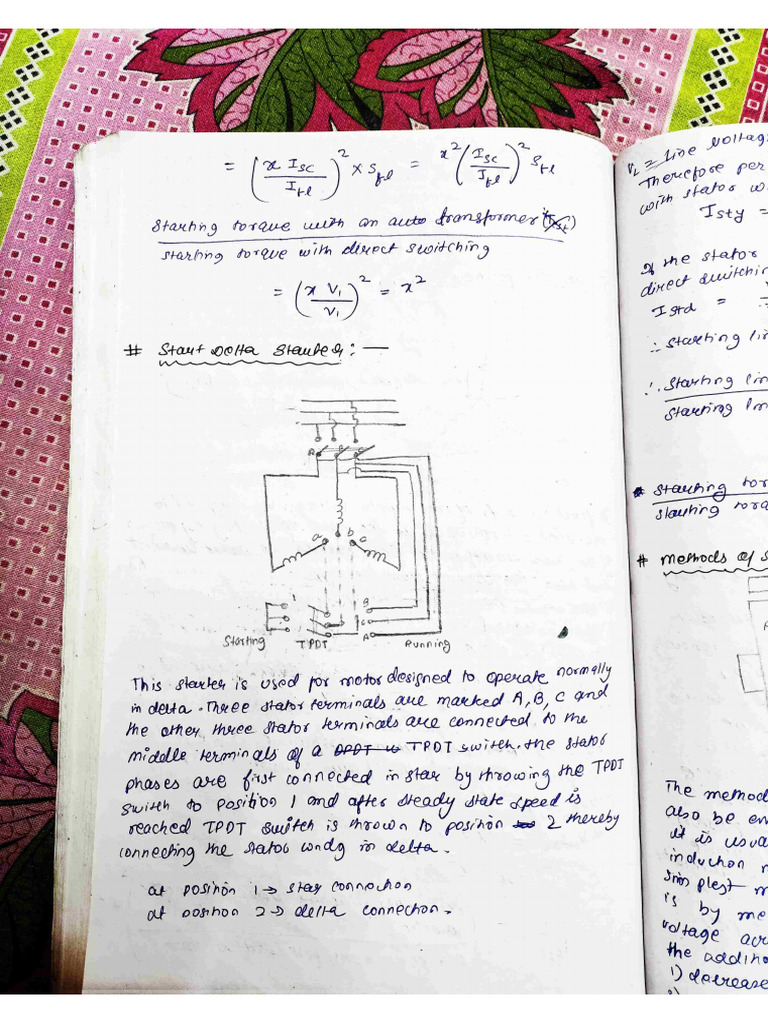 = (x Isc / Ifl)² × Sfl = x² (Isc / Ifl)² Sfl
Starting torque with an auto transformer
Starting torque with direct switching
= (x V₁ / V₁)² = x²
# Start Delta Starter : —
A B C
a b c
1
B
C
A
Starting TPDT Running
This starter is used for motor designed to operate normally
in delta. Three stator terminals are marked A, B, C and
the other three stator terminals are connected to the
middle terminals of a TPDT switch. the stator
phases are first connected in star by throwing the TPDT
switch to position 1 and after steady state speed is
reached TPDT switch is thrown to position 2 thereby
connecting the stator wndg in delta.
at position 1 → star connection
at position 2 → delta connection.
VL = Line Voltag
Therefore per
with stator w
Isty =
If the stator
direct switchin
Istd =
∴ Starting lin
∴ Starting lin
Starting lin
* Starting tor
Starting torq
# Methods of S
The method
also be em
it is usua
induction m
Simplest m
is by me
voltage acr
the additio
1) decrease